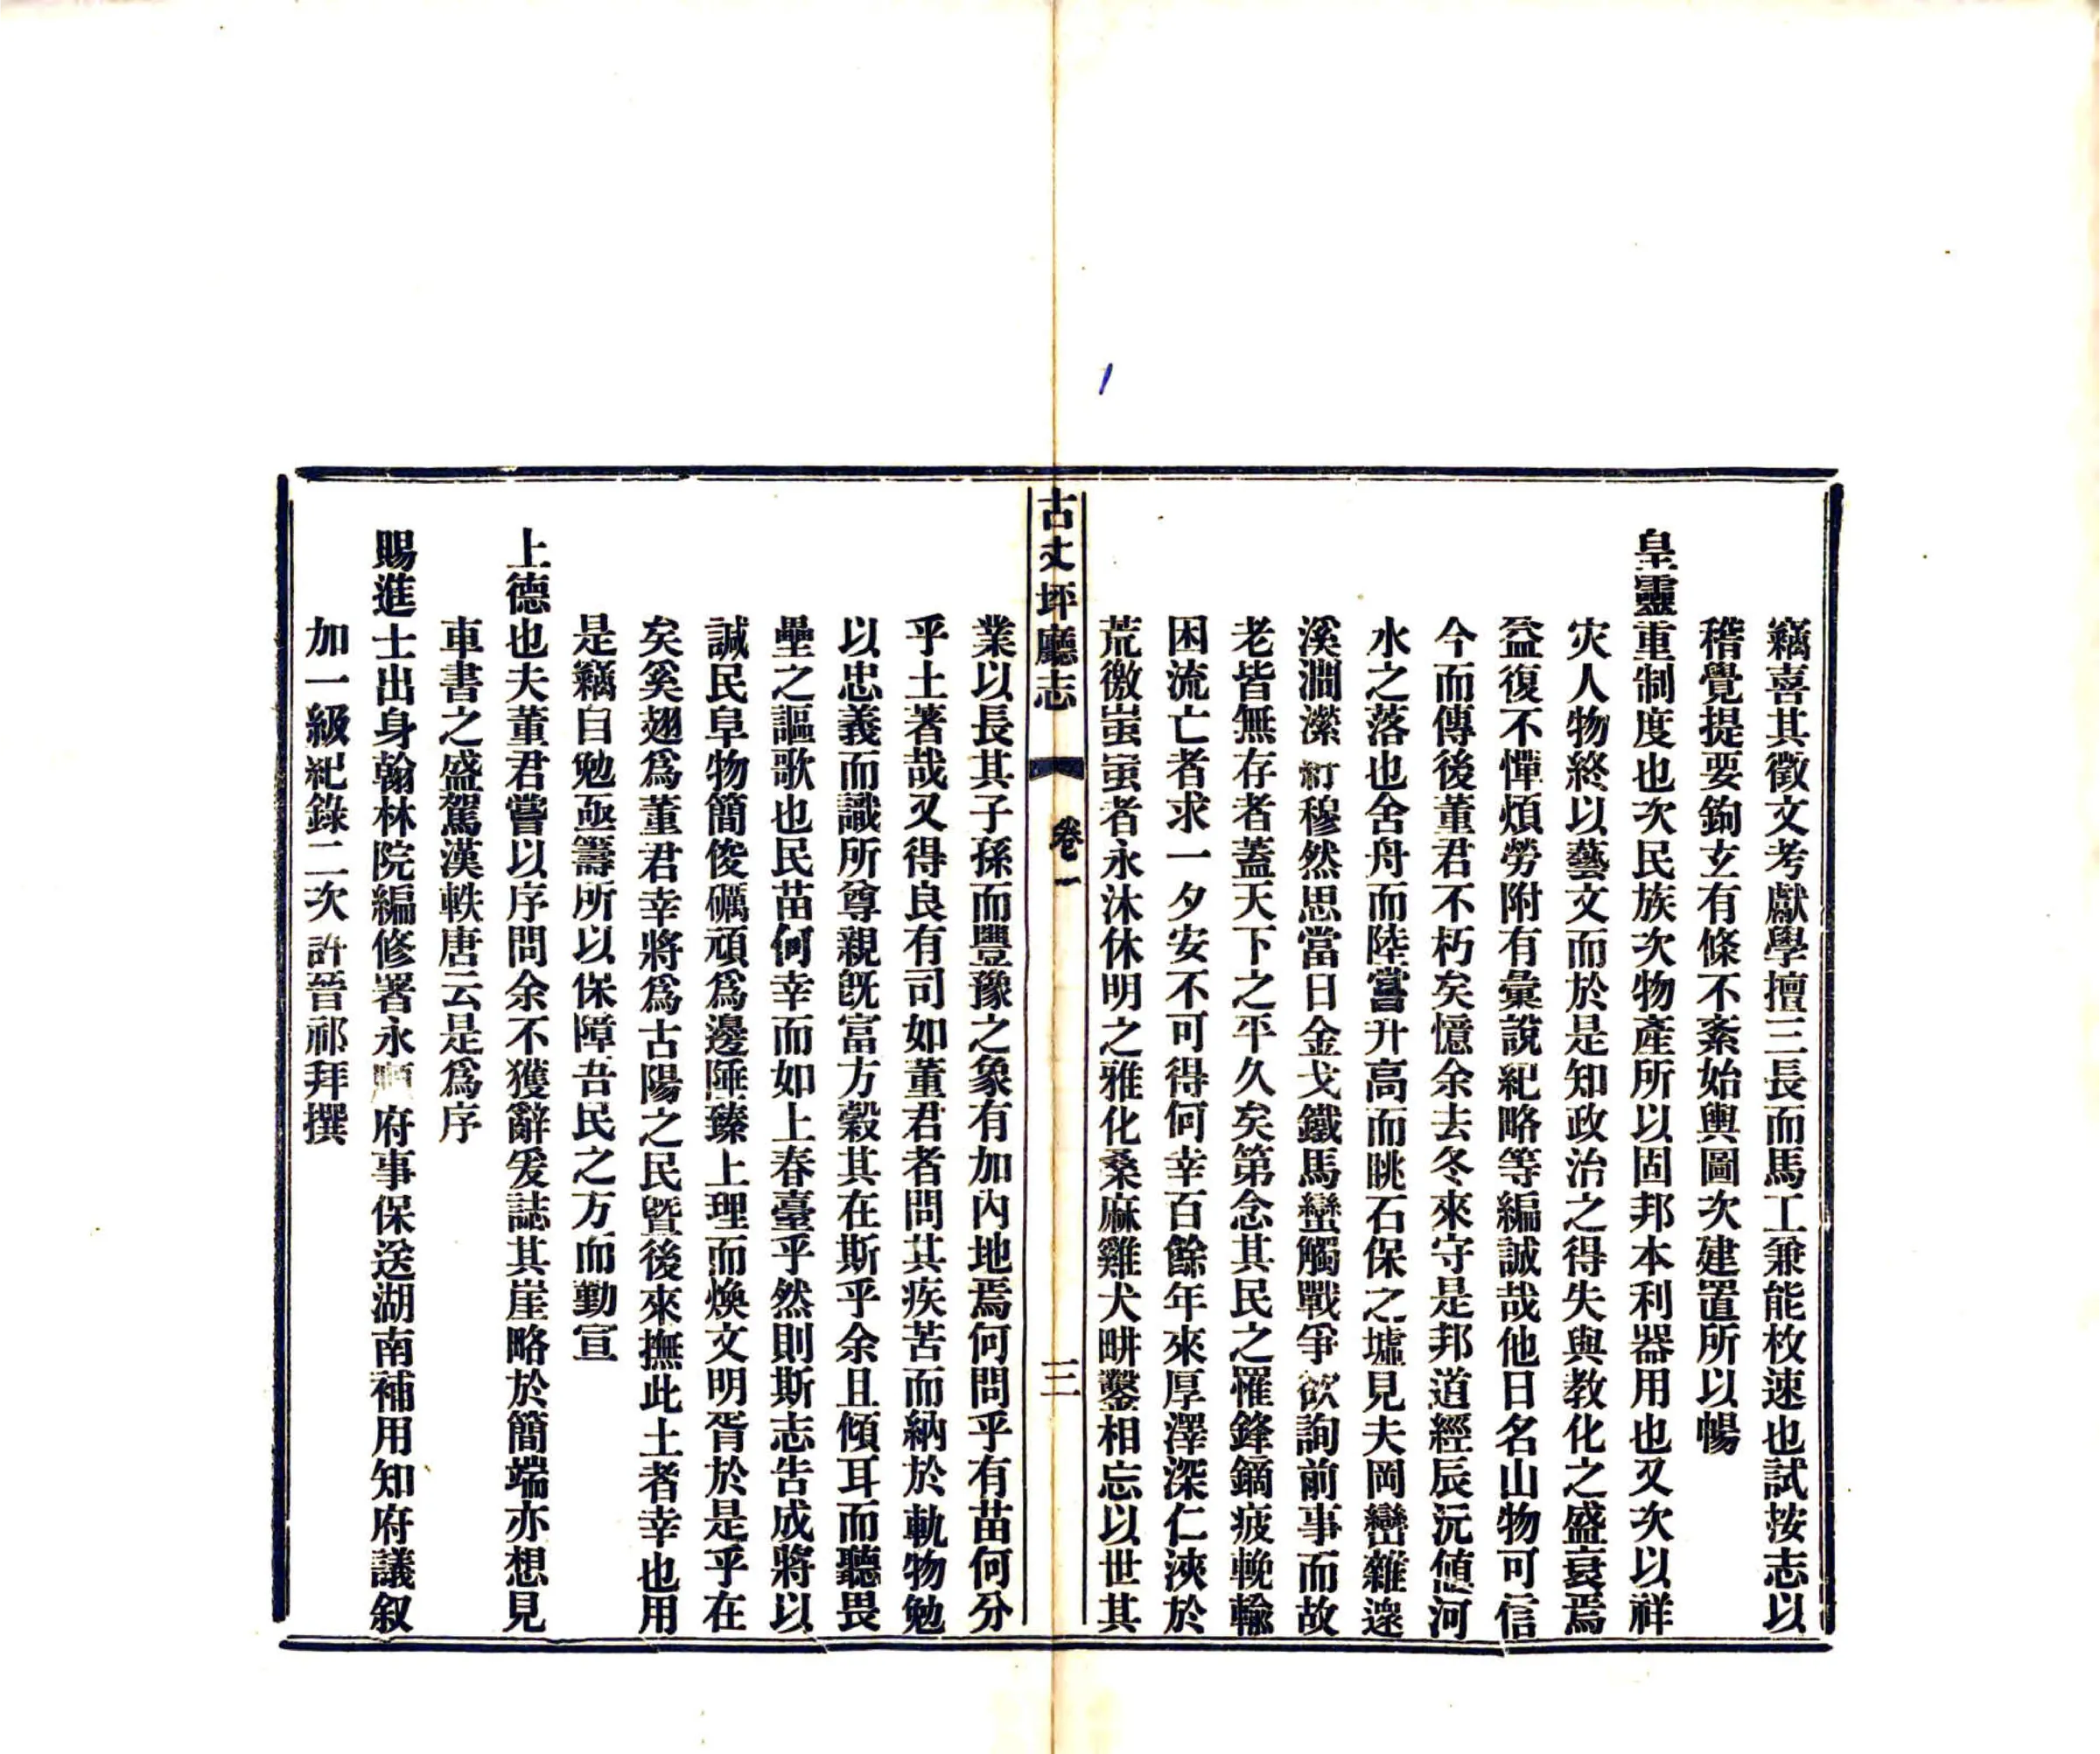 竊喜其徵文考獻學擅三長而馬工兼能枚速也試按志以
稽覺提要鉤玄有條不紊始輿圖次建置所以暢
皇靈重制度也次民族次物產所以固邦本利器用也又次以祥
灾人物終以藝文而於是知政治之得失與教化之盛衰焉
益復不憚煩勞附有彙說紀略等編誠哉他日名山物可信
今而傳後董君不朽矣憶余去冬來守是邦道經辰沅値河
水之落也舍舟而陸嘗升高而眺石保之墟見夫岡巒雜遝
溪澗瀠紆穆然思當日金戈鐵馬蠻觸戰爭欲詢前事而故
老皆無存者蓋天下之平久矣第念其民之罹鋒鏑疲輓輸
困流亡者求一夕安不可得何幸百餘年來厚澤深仁浹於
荒徼蚩蚩者永沐休明之雅化桑麻雞犬畊鑿相忘以世其
古丈坪廳志 卷一 三
業以長其子孫而豐豫之象有加內地焉何問乎有苗何分
乎土著哉又得良有司如董君者問其疾苦而納於軌物勉
以忠義而識所尊親既富方穀其在斯乎余且傾耳而聽畏
壘之謳歌也民苗何幸而如上春臺乎然則斯志告成將以
諴民阜物簡俊礪頑爲邊陲臻上理而煥文明胥於是乎在
矣奚翅爲董君幸將爲古陽之民曁後來撫此土者幸也用
是竊自勉亟籌所以保障吾民之方而勤宣
上德也夫董君嘗以序問余不獲辭爰誌其崖略於簡端亦想見
車書之盛駕漢軼唐云是爲序
賜進士出身翰林院編修署永順府事保送湖南補用知府議叙
加一級紀錄二次許晉祁拜撰